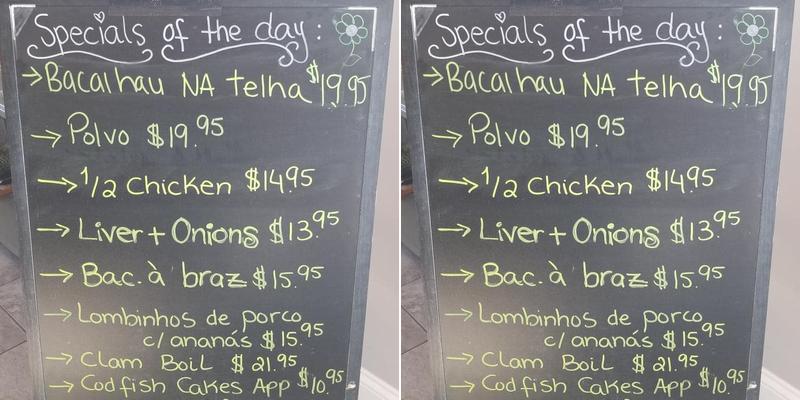 Specials of the day:
→ Bacalhau NA telha $19.95
→ Polvo $19.95
→ 1/2 Chicken $14.95
→ Liver + Onions $13.95
→ Bac. à braz $15.95
→ Lombinhos de porco
c/ ananás $15.95
→ Clam Boil $21.95
→ Codfish Cakes App $10.95
Specials of the day:
→ Bacalhau NA telha $19.95
→ Polvo $19.95
→ 1/2 Chicken $14.95
→ Liver + Onions $13.95
→ Bac. à braz $15.95
→ Lombinhos de porco
c/ ananás $15.95
→ Clam Boil $21.95
→ Codfish Cakes App $10.95